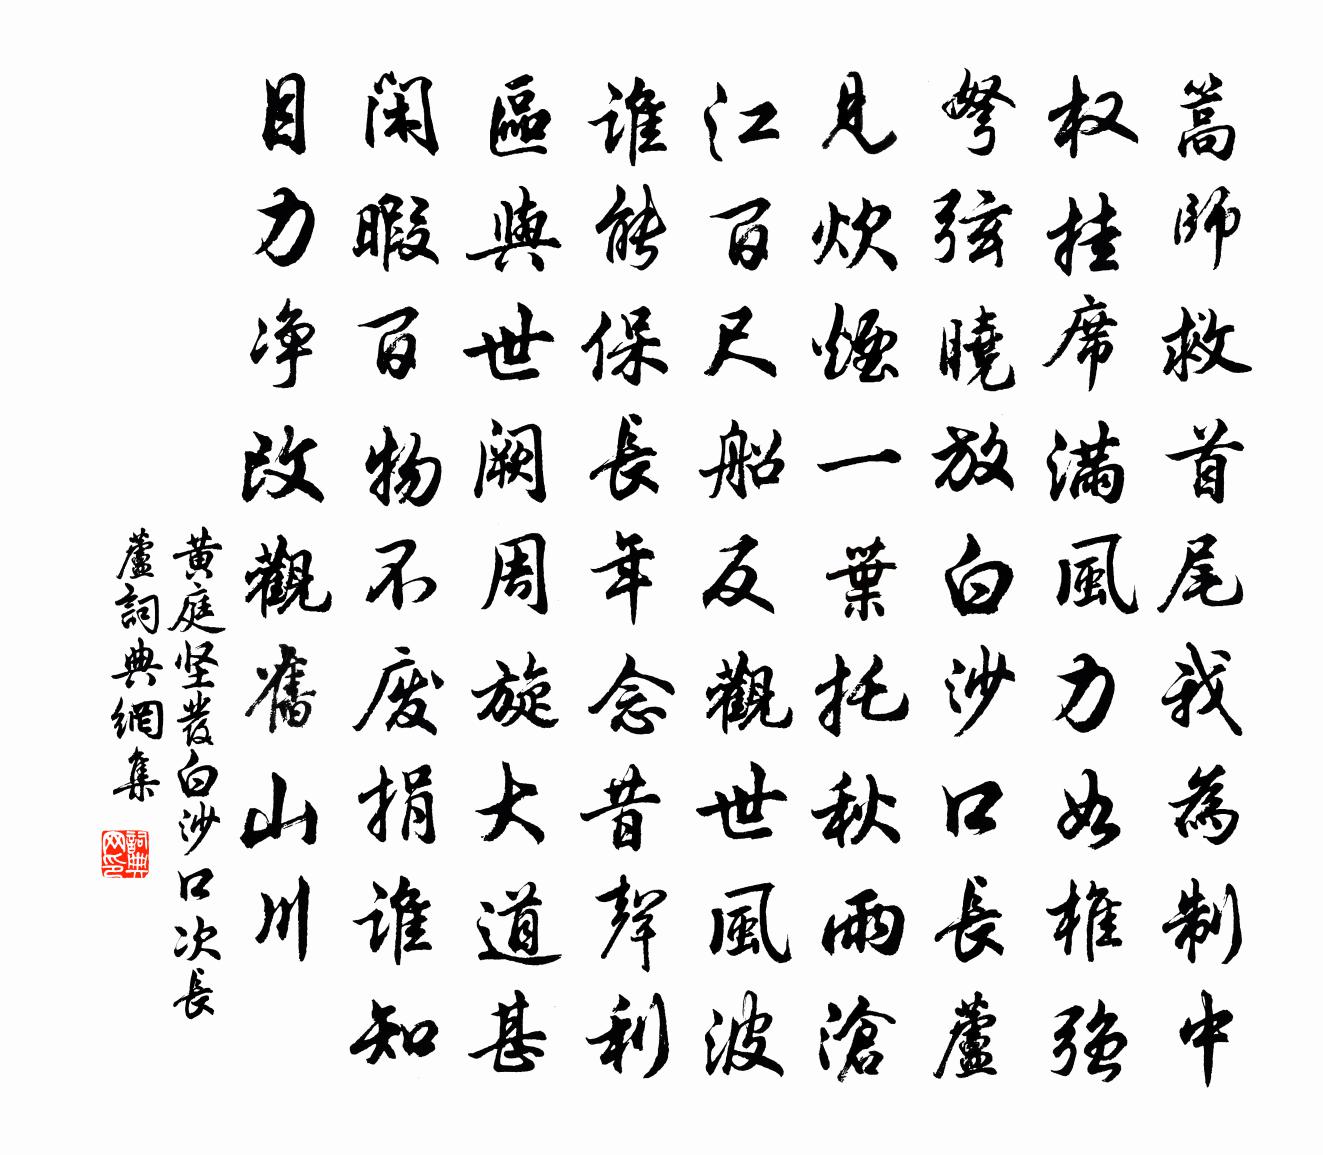 篙師救首尾我為制中
权挂席滿風力如椎强
弩弦曉放白沙口長蘆
見炊煙一葉托秋雨滄
江百尺船反觀世風波
誰能保長年念昔聲利
區與世闕周旋大道甚
閑暇百物不废捐誰知
目力净改觀舊山川
黄庭坚發白沙口次長
蘆詞典網集
詞典
网印